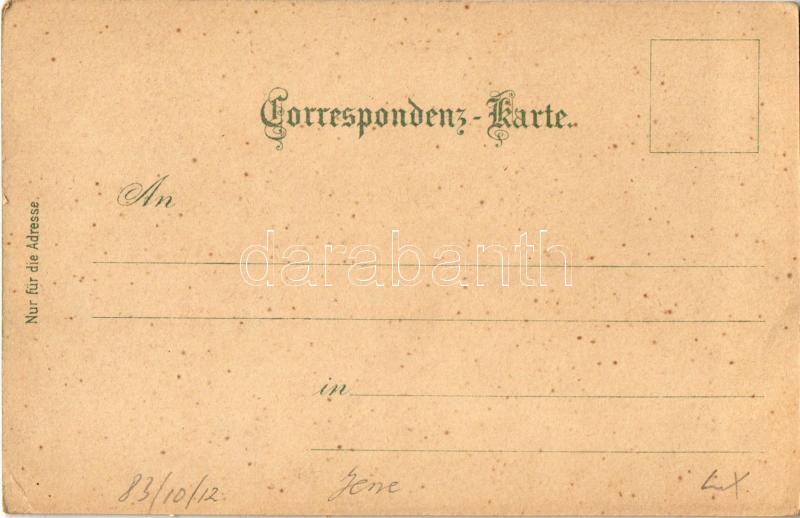 Correspondenz-Karte.
An
Nur für die Adresse.
darabanth
in
83/10/12